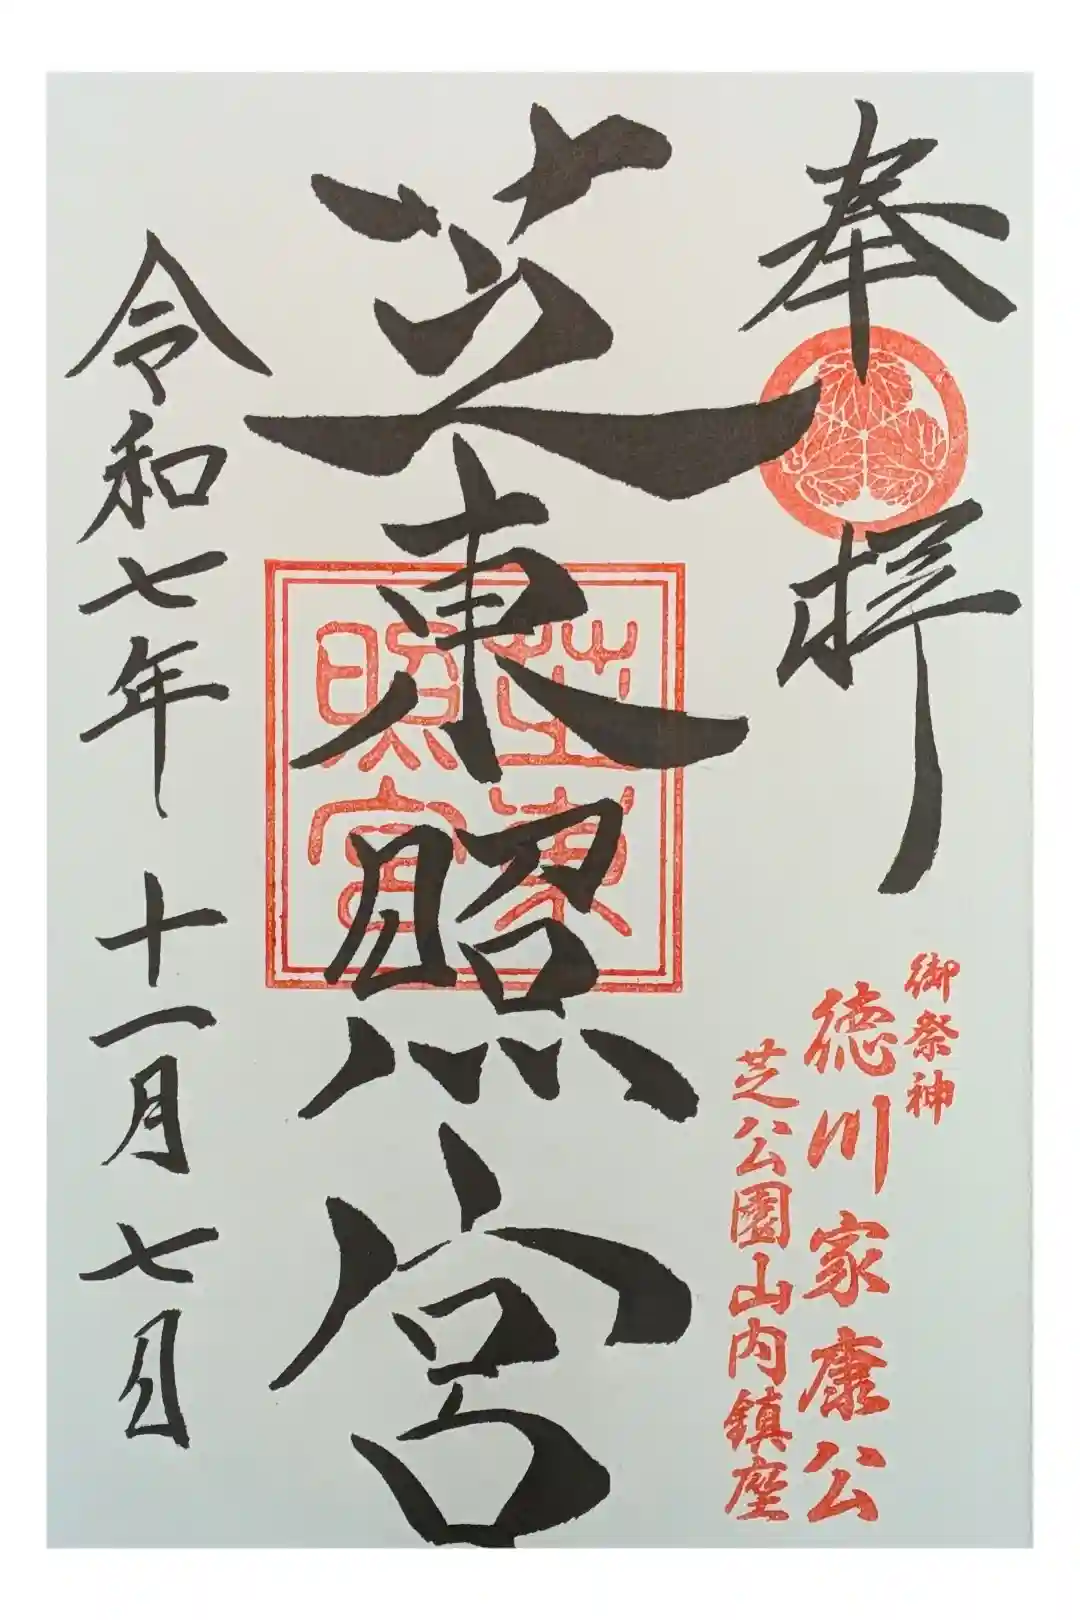 奉拝
御祭神
徳川家康公
芝公園山内鎮座
芝東照宮
芝東
照宮
令和七年十一月七日